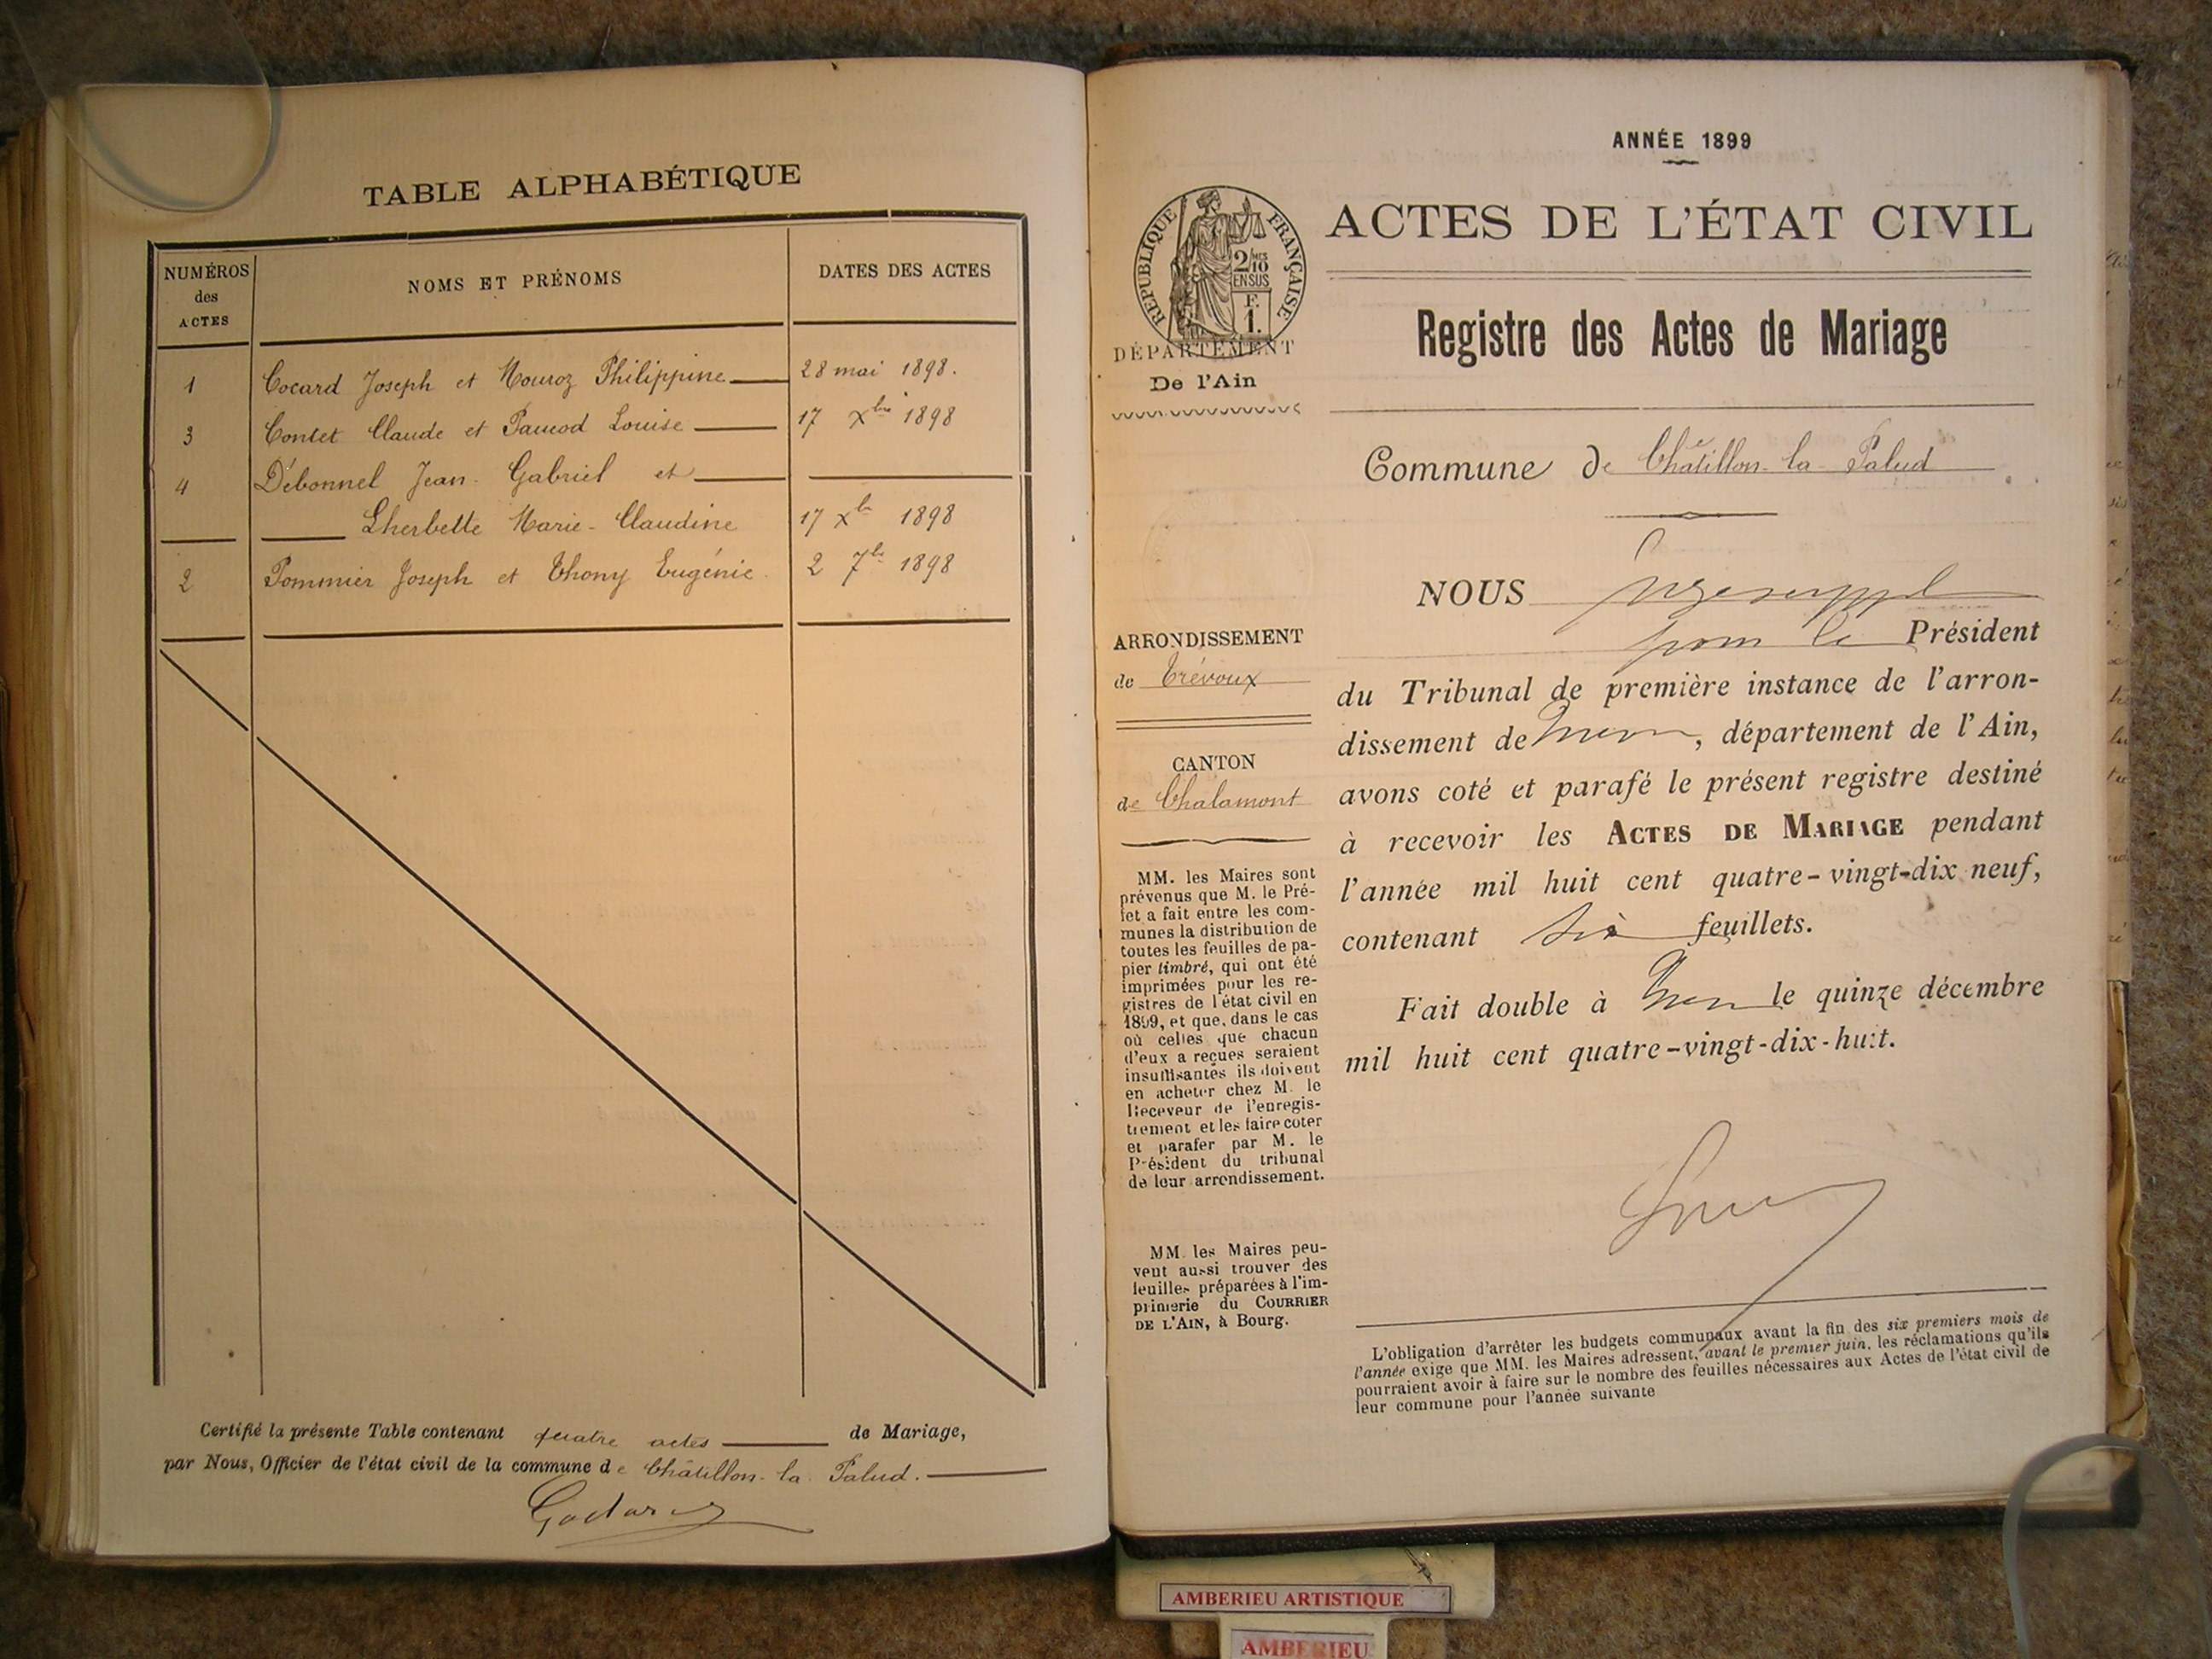 TABLE ALPHABÉTIQUE
NUMÉROS
des
ACTES
NOMS ET PRÉNOMS
DATES DES ACTES
1 Cocard Joseph et Mouroz Philippine 28 mai 1898.
3 Contet Claude et Paucod Louise 17 Xbre 1898
4 Débonnel Jean-Gabriel et
Lherbette Marie-Claudine 17 Xbre 1898
2 Pommier Joseph et Thony Eugénie 2 7bre 1898
Certifié la présente Table contenant quatre actes de Mariage,
par Nous, Officier de l'état civil de la commune de Châtillon-la-Palud.
ANNÉE 1899
RÉPUBLIQUE FRANÇAISE
2/10MES
EN SUS
F.
1.
DÉPARTEMENT
De l'Ain
ACTES DE L'ÉTAT CIVIL
Registre des Actes de Mariage
Commune de Châtillon-la-Palud
ARRONDISSEMENT
de Trévoux
CANTON
de Chalamont
MM. les Maires sont
prévenus que M. le Pré-
fet a fait entre les com-
munes la distribution de
toutes les feuilles de pa-
pier timbré, qui ont été
imprimées pour les re-
gistres de l'état civil en
1899, et que, dans le cas
où celles que chacun
d'eux a reçues seraient
insuffisantes ils doivent
en acheter chez M. le
Receveur de l'enregis-
trement et les faire coter
et parafer par M. le
Président du tribunal
de leur arrondissement.
MM. les Maires peu-
vent aussi trouver des
feuilles préparées à l'im-
primerie du COURRIER
DE L'AIN, à Bourg.
NOUS
pour le Président
du Tribunal de première instance de l'arron-
dissement de , département de l'Ain,
avons coté et parafé le présent registre destiné
à recevoir les ACTES DE MARIAGE pendant
l'année mil huit cent quatre-vingt-dix neuf,
contenant six feuillets.
Fait double à le quinze décembre
mil huit cent quatre-vingt-dix-huit.
L'obligation d'arrêter les budgets communaux avant la fin des six premiers mois de
l'année exige que MM. les Maires adressent, avant le premier juin, les réclamations qu'ils
pourraient avoir à faire sur le nombre des feuilles nécessaires aux Actes de l'état civil de
leur commune pour l'année suivante
AMBERIEU ARTISTIQUE
AMBERIEU